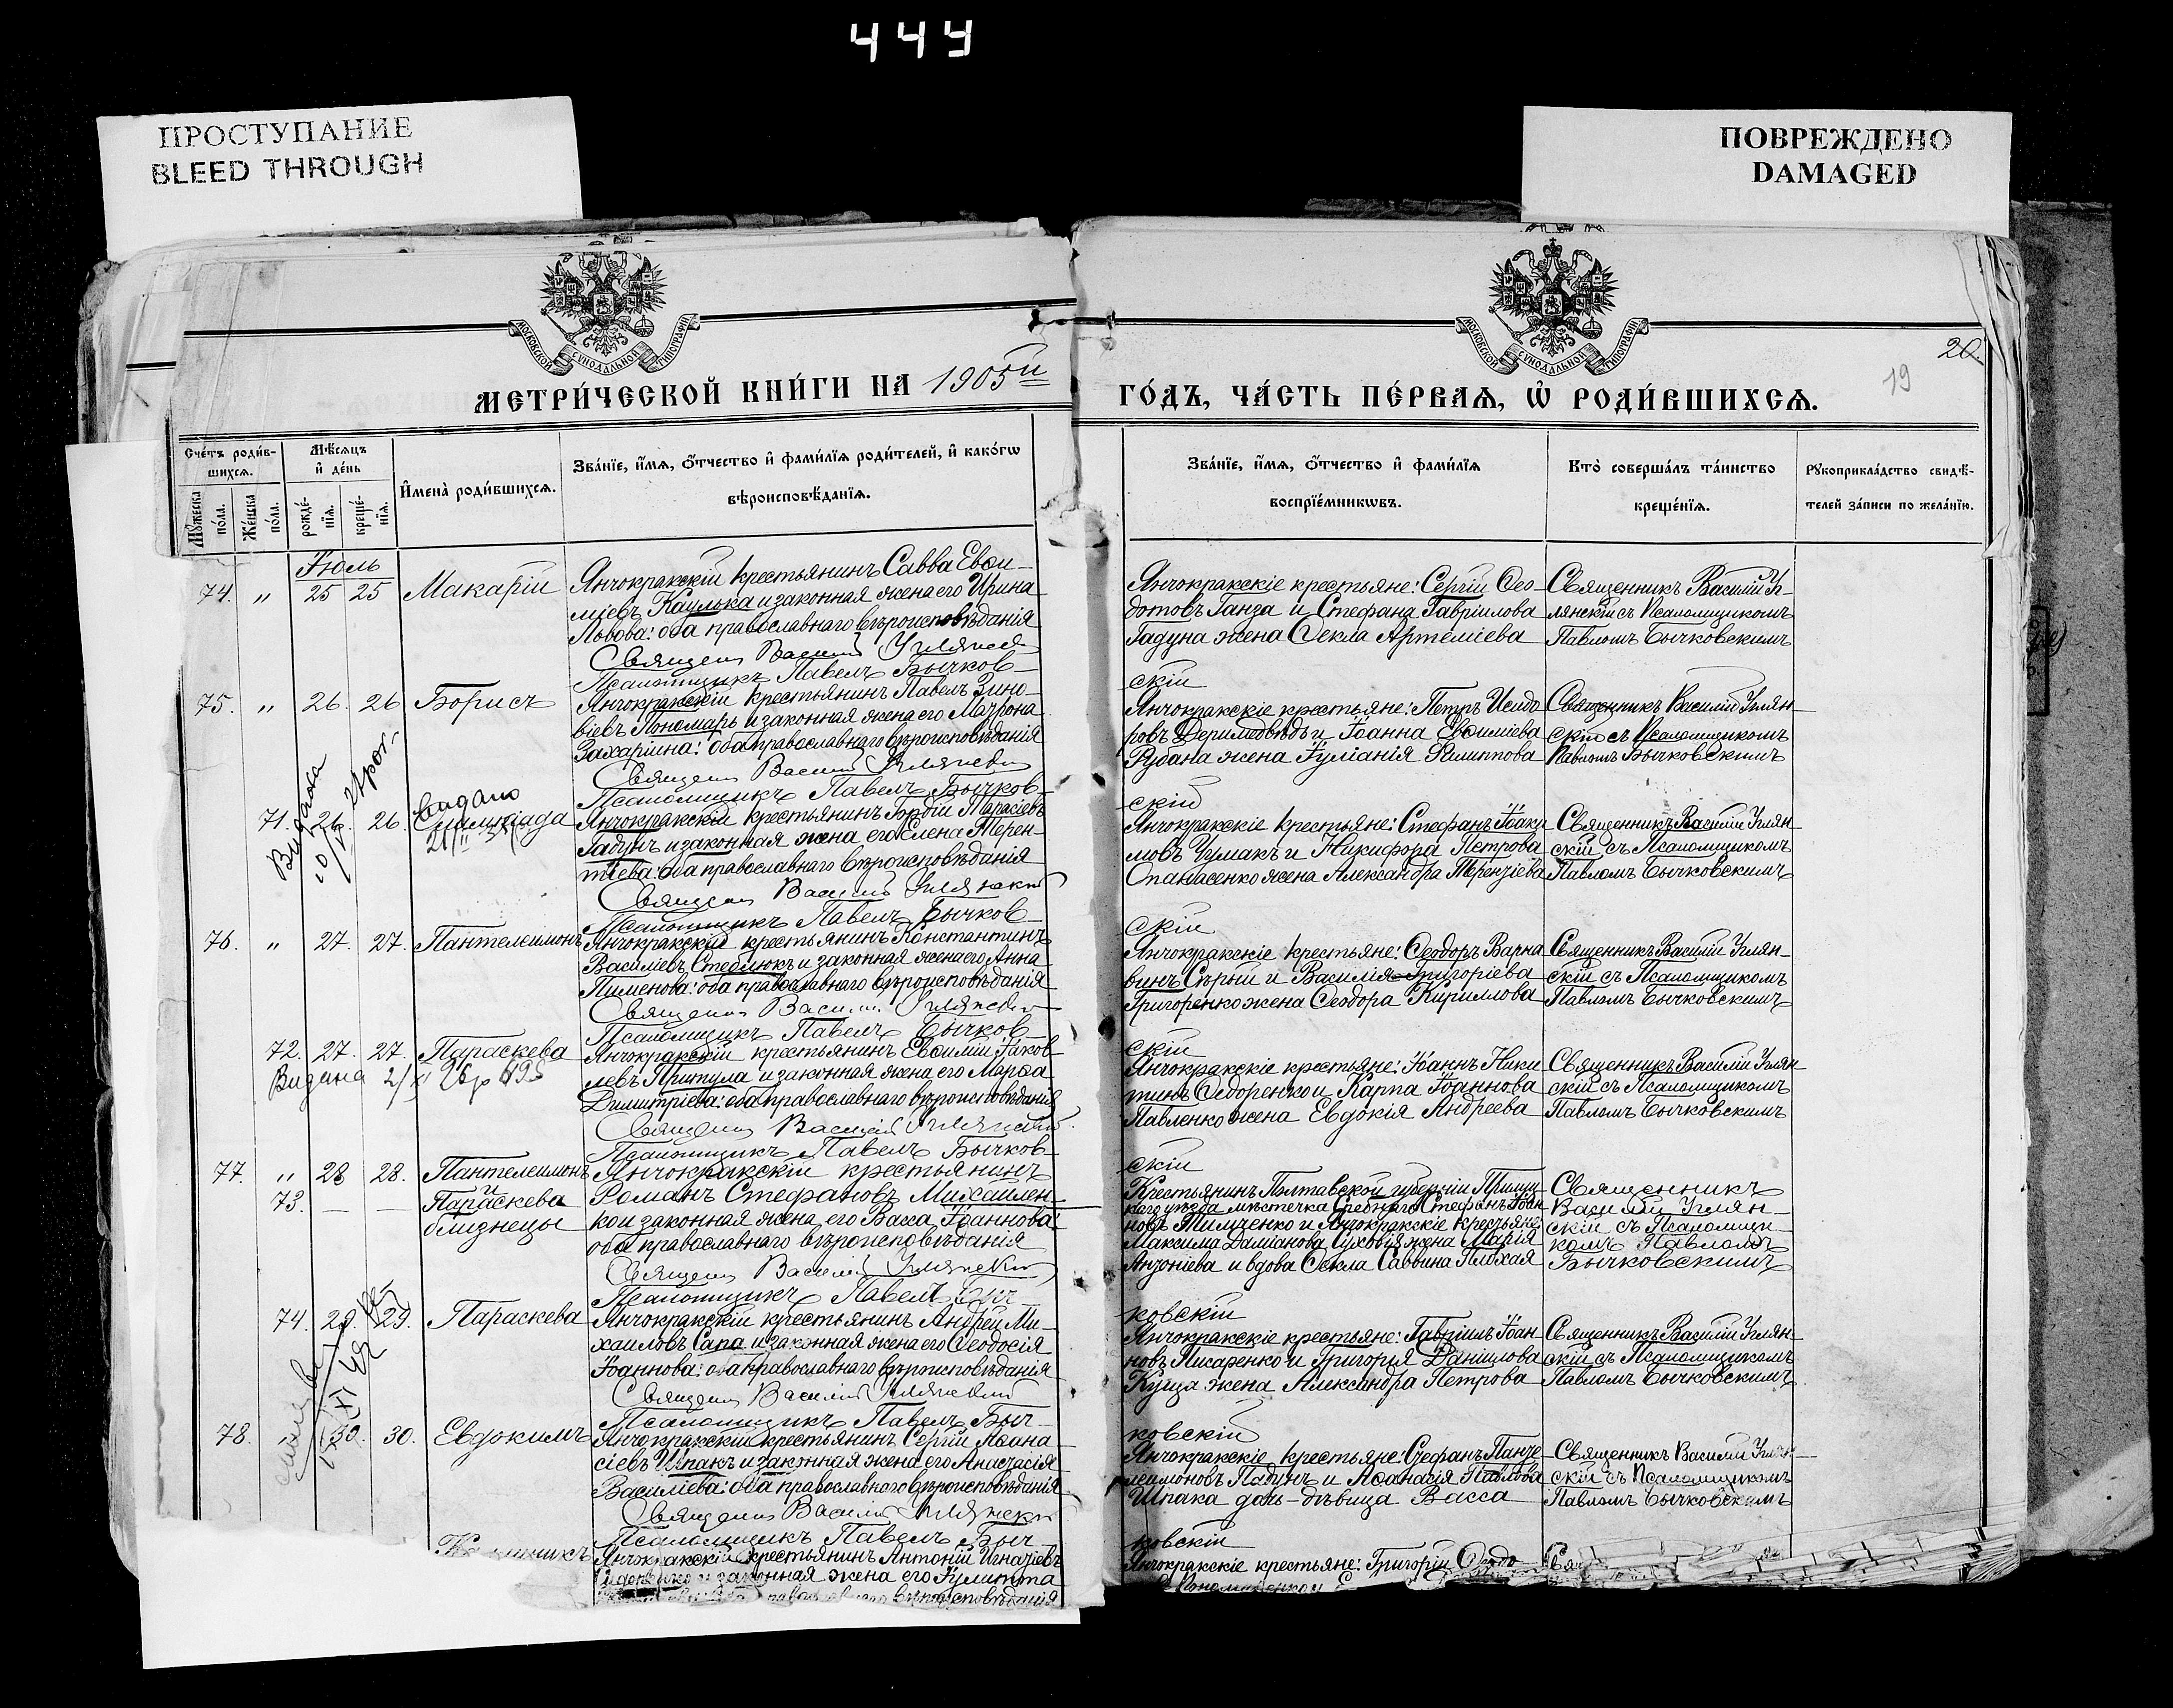 444
ПРОСТУПАНИЕ
BLEED THROUGH
ПОВРЕЖДЕНО
DAMAGED
МОСКОВСКОЙ СУНОДАЛЬНОЙ ТИПОГРАФІИ
МОСКОВСКОЙ СУНОДАЛЬНОЙ ТИПОГРАФІИ
20.
19
МЕТРИ́ЧЕСКОЙ КНИ́ГИ НА 1905й
ГО́ДЪ, ЧА́СТЬ ПЕ́РВАѦ, Ѡ҆ РОДИ́ВШИХСѦ.
Сче́тъ роди́в-
шихсѧ.
Мꙋ́жеска по́ла.
Же́нска по́ла.
Мѣ́сѧцъ
и҆ де́нь
рожде́-нїѧ.
креще́-нїѧ.
И҆мена̀ роди́вшихсѧ.
Зва́нїе, и҆́мѧ, ѻ҆́тчество и҆ фами́лїѧ роди́телей, и҆ како́гѡ
вѣроисповѣ́данїѧ.
Зва́нїе, и҆́мѧ, ѻ҆́тчество и҆ фами́лїѧ
воспрїе́мникѡвъ.
Кто̀ соверша́лъ та́инство
креще́нїѧ.
Рꙋкоприкла́дство свидѣ́-
телей за́писи по жела́нїю.
Іюль
74. „ 25 25 Макарій
Янчокракскій крестьянинъ Савва Евѳи-
міевъ Каулька и законная жена его Ирина
Львова: оба православнаго вѣроисповѣданія
Священ. Василій Углянскій
Псаломщикъ Павелъ Бычков-
скій
Янчокракскіе крестьяне: Сергій Ѳео-
дотовъ Ганза и Стефана Гавріилова
Гадуна жена Ѳекла Артеміева
Священникъ Василій Уг-
лянскій съ Псаломщикомъ
Павломъ Бычковскимъ
75. „ 26. 26 Борисъ
Янчокракскій крестьянинъ Павелъ Зино-
віевъ Пономарь и законная жена его Матрона
Захаріина: оба православнаго вѣроисповѣданія
Священ. Василій Углянскій
Псаломщикъ Павелъ Бычков-
скій
Янчокракскіе крестьяне: Петръ Исидо
ровъ Деримедвѣдь и Іоанна Евѳиміева
Рубана жена Іуліанія Филиппова
Священникъ Василій Углян
скій съ Псаломщикомъ
Павломъ Бычковскимъ
Видана
71. 26. 26.
Видано
Янчокракскій крестьянинъ Гордій Тарасіевъ
Гадунъ и законная жена его Елена Терен-
тіева: оба православнаго вѣроисповѣданія
Священ. Василій Углянскій
Псаломщикъ Павелъ Бычков-
скій
Янчокракскіе крестьяне: Стефанъ Іоаки
мовъ Чумакъ и Никифора Петрова
Опанасенко жена Александра Терентіева
Священникъ Василій Углян
скій съ Псаломщикомъ
Павломъ Бычковскимъ
76. „ 27. 27. Пантелеимонъ
Янчокракскій крестьянинъ Константинъ
Василіевъ Стеблюкъ и законная жена его Анна
Пименова: оба православнаго вѣроисповѣданія
Священ. Василій Углянскій
Псаломщикъ Павелъ Бычков-
скій
Янчокракскіе крестьяне: Ѳеодоръ Варна
винъ Сѣрый и Василія Григоріева
Григоренко жена Ѳеодора Кириллова
Священникъ Василій Углян-
скій съ Псаломщикомъ
Павломъ Бычковскимъ
72. 27. 27. Параскева
Видана
Янчокракскій крестьянинъ Евѳимій Іаков-
левъ Притула и законная жена его Марѳа
Димитріева: оба православнаго вѣроисповѣданія
Священ. Василій Углянскій
Псаломщикъ Павелъ Бычков-
скій
Янчокракскіе крестьяне: Іоаннъ Ники
тинъ Ѳедоренко и Карпа Іоаннова
Павленко жена Евдокія Андреева
Священникъ Василій Углян
скій съ Псаломщикомъ
Павломъ Бычковскимъ
77. „ 28 28. Пантелеимонъ
и
73. — — Параскева
близнецы
Янчокракскій крестьянинъ
Романъ Стефановъ Михайлен-
ко и законная жена его Васса Іоаннова:
оба православнаго вѣроисповѣданія
Священ. Василій Углянскій
Псаломщикъ Павелъ Быч-
ковскій
Крестьянинъ Полтавской губерніи
уѣзда мѣстечка Стефанъ Іоан
новъ Тимченко и Янчокракскіе крестьяне
Максима Даміанова Суховія жена Марія
Антоніева и вдова Ѳекла Саввина Плохая
Священникъ
Василій Углян-
скій съ Псаломщи-
комъ Павломъ
Бычковскимъ
74. 29. 29. Параскева
Янчокракскій крестьянинъ Андрей Ми-
хаиловъ Сапа и законная жена его Ѳеодосія
Іоаннова: оба православнаго вѣроисповѣданія
Священ. Василій Углянскій
Псаломщикъ Павелъ Быч-
ковскій
Янчокракскіе крестьяне: Гавріилъ Іоан
новъ Писаренко и Григорія Даніилова
Куща жена Александра Петрова
Священникъ Василій Углян-
скій съ Псаломщикомъ
Павломъ Бычковскимъ
78. 30. 30. Евдокимъ
Янчокракскій крестьянинъ Сергій Аѳана-
сіевъ Шпакъ и законная жена его Анастасія
Василіева: оба православнаго вѣроисповѣданія
Священ. Василій Углянскій
Псаломщикъ Павелъ Быч
ковскій
Янчокракскіе крестьяне: Стефанъ Панте-
леимоновъ Падунъ и Аѳанасія Павлова
Шпака дочь-дѣвица Васса
Священникъ Василій Углян
скій съ Псаломщикомъ
Павломъ Бычковскимъ
Янчокракскій крестьянинъ Антоній Игнатіевъ
и законная жена его Іулитта
вѣроисповѣданія
Янчокракскіе крестьяне: Григорій Ѳеодо